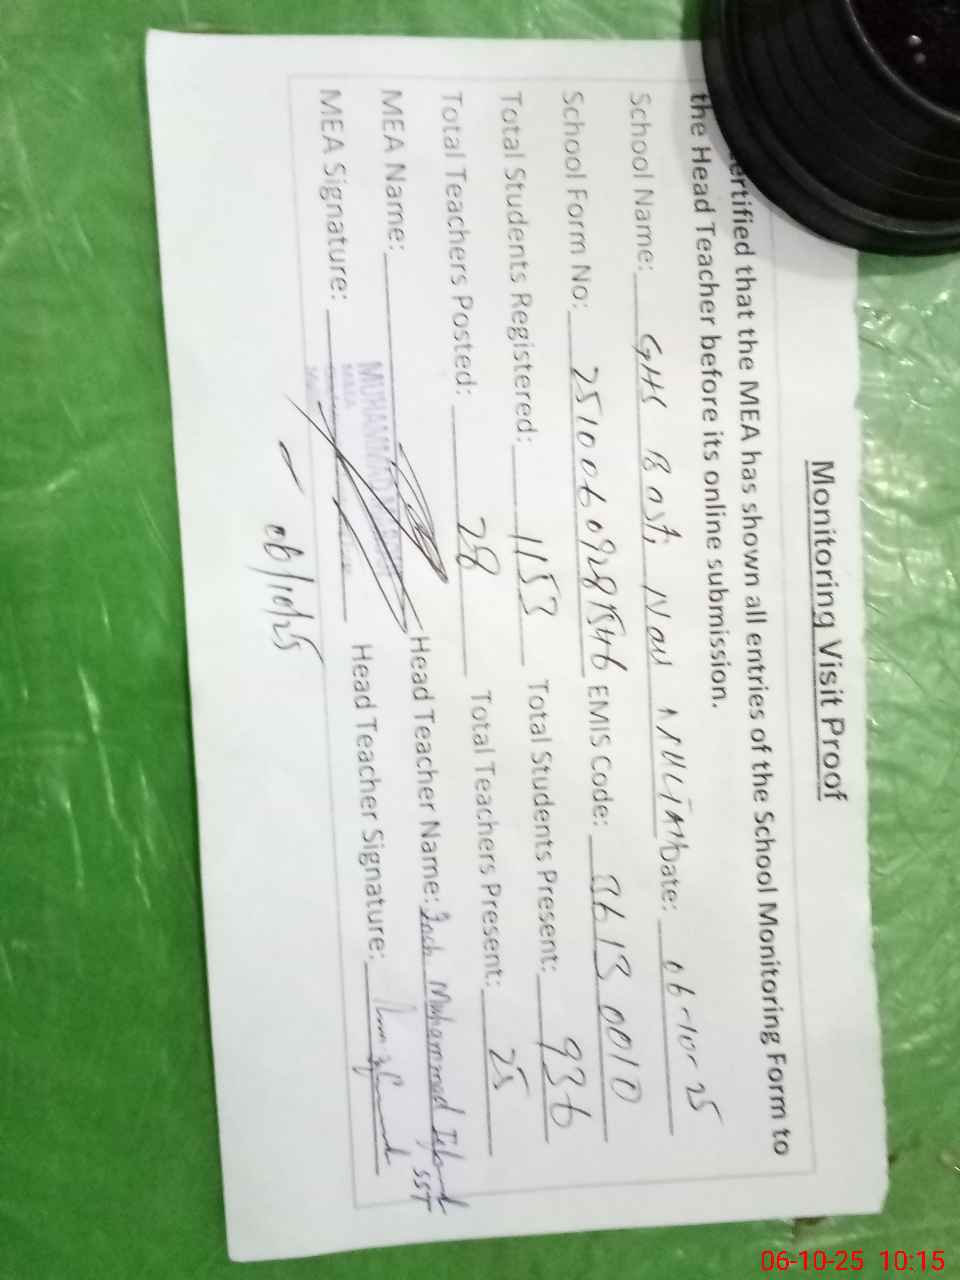 Monitoring Visit Proof
ertified that the MEA has shown all entries of the School Monitoring Form to
the Head Teacher before its online submission.
School Name: GHS Basti Nau Date: 06-10-25
School Form No: EMIS Code: 36130010
Total Students Registered: 1153 Total Students Present: 936
Total Teachers Posted: 28 Total Teachers Present: 25
MEA Name: Head Teacher Name: Muhammad SST
MUHAMMAD
MEA Signature: Head Teacher Signature:
06/10/25
06-10-25 10:15